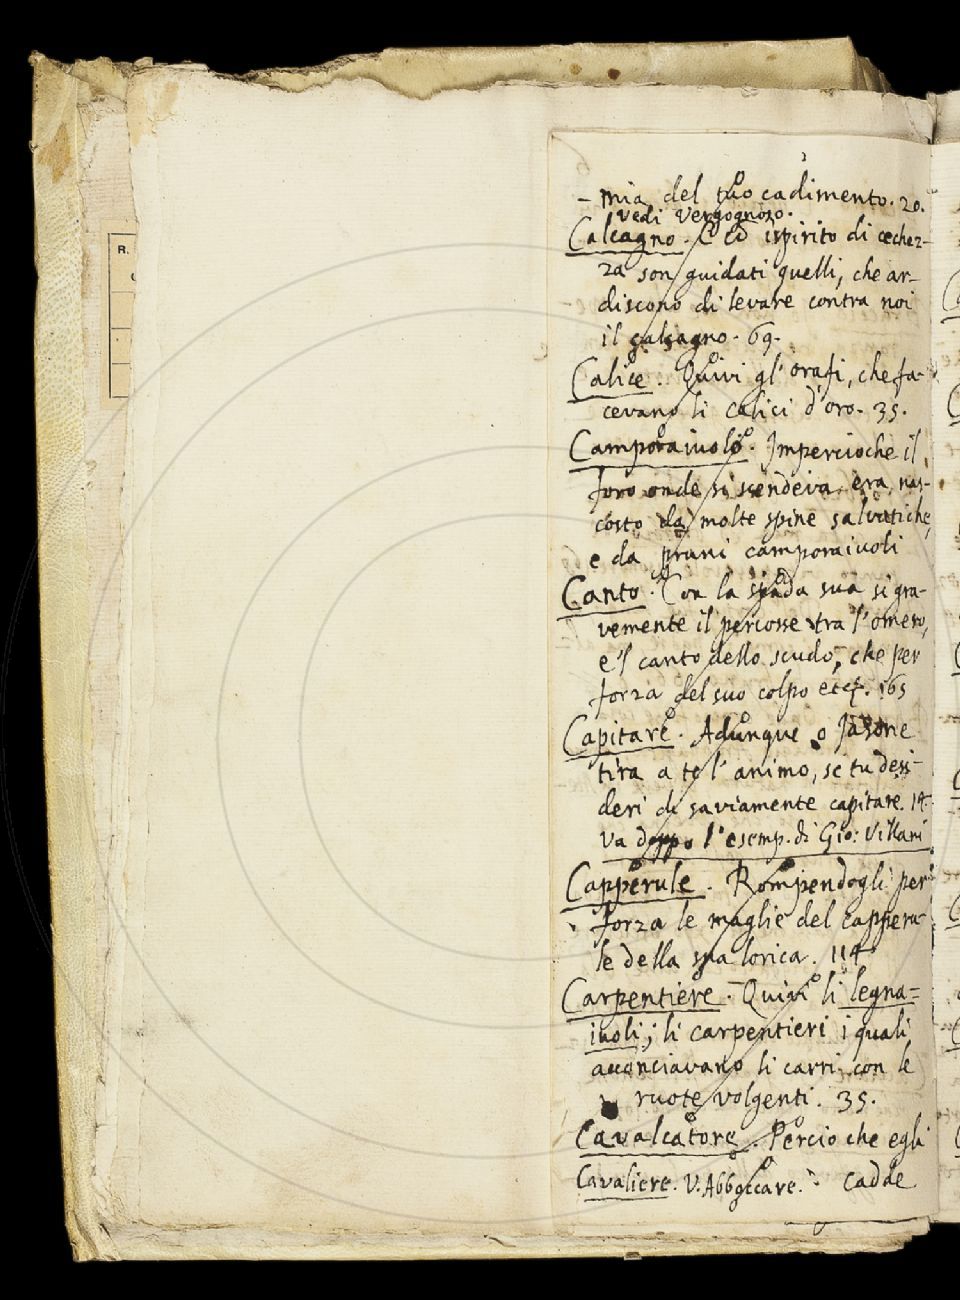 R.
- mia del tuo cadimento. 20.
vedi Vergognoso.
Calcagno. Con ispirito di ciechez-
za son guidati quelli, che ar-
discono di levare contra noi
il calcagno. 69.
Calice. Quivi gl' orafi, che fa-
cevano li calici d'oro. 35.
Camporaiuolo. Impercioche il
foro onde si scendeva, era nas-
costo da molte spine salvatiche,
e da pruni camporaiuoli
Canto. Con la spada sua si gra-
vemente il percosse tra l'omero,
e 'l canto dello scudo, che per
forza del suo colpo etc. 165
Capitare. Adunque o Jasone
tira a te l' animo, se tu desi-
deri di saviamente capitare. 14.
va doppo l'esemp. di Gio: Villani
Capperule. Rompendogli per
forza le maglie del capperu-
le della sua lorica. 114
Carpentiere. Quivi li legna=
iuoli, li carpentieri i quali
acconciavano li carri con le
ruote volgenti. 35.
Cavalcatore. Percio che egli
Cavaliere. V. Abboccare. cadde